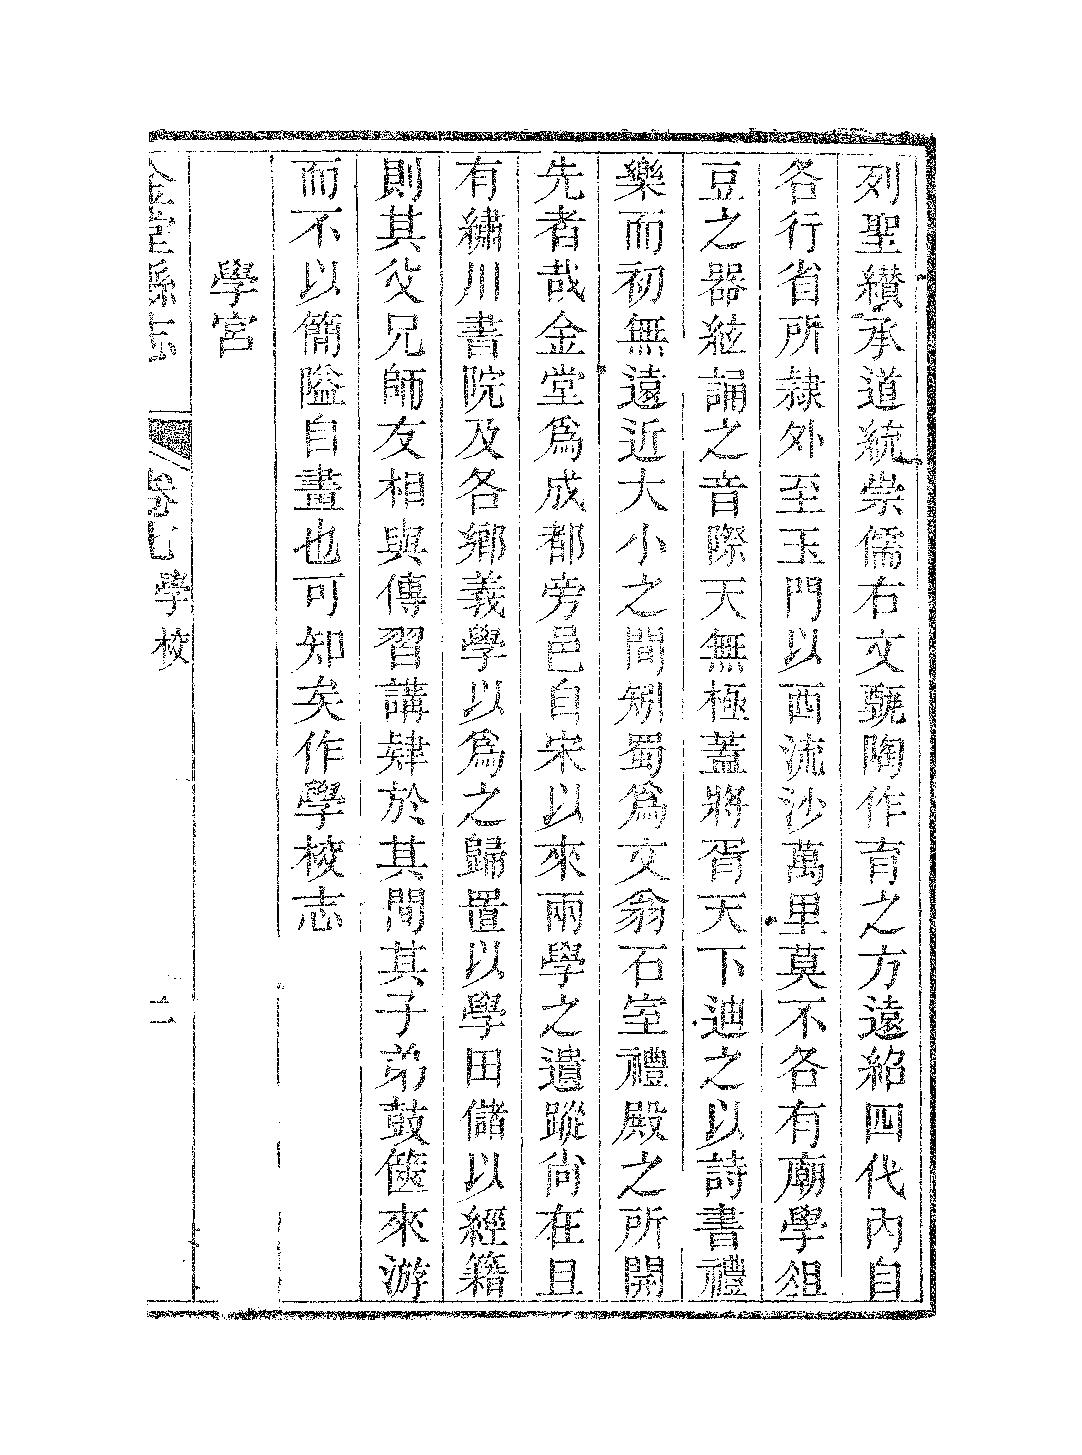 列聖纘承道統崇儒右文甄陶作育之方遠紹四代內自
各行省所隸外至玉門以西流沙萬里莫不各有廟學俎
豆之器絃誦之音際天無極蓋將胥天下迪之以詩書禮
樂而初無遠近大小之間矧蜀為文翁石室禮殿之所開
先者哉金堂為成都旁邑自宋以來兩學之遺蹤尚在且
有繡川書院及各鄉義學以為之歸置以學田儲以經籍
則其父兄師友相與傳習講肄於其間其子弟鼓篋來游
而不以簡隘自畫也可知矣作學校志
學宮
金堂縣志 卷七 學校 二